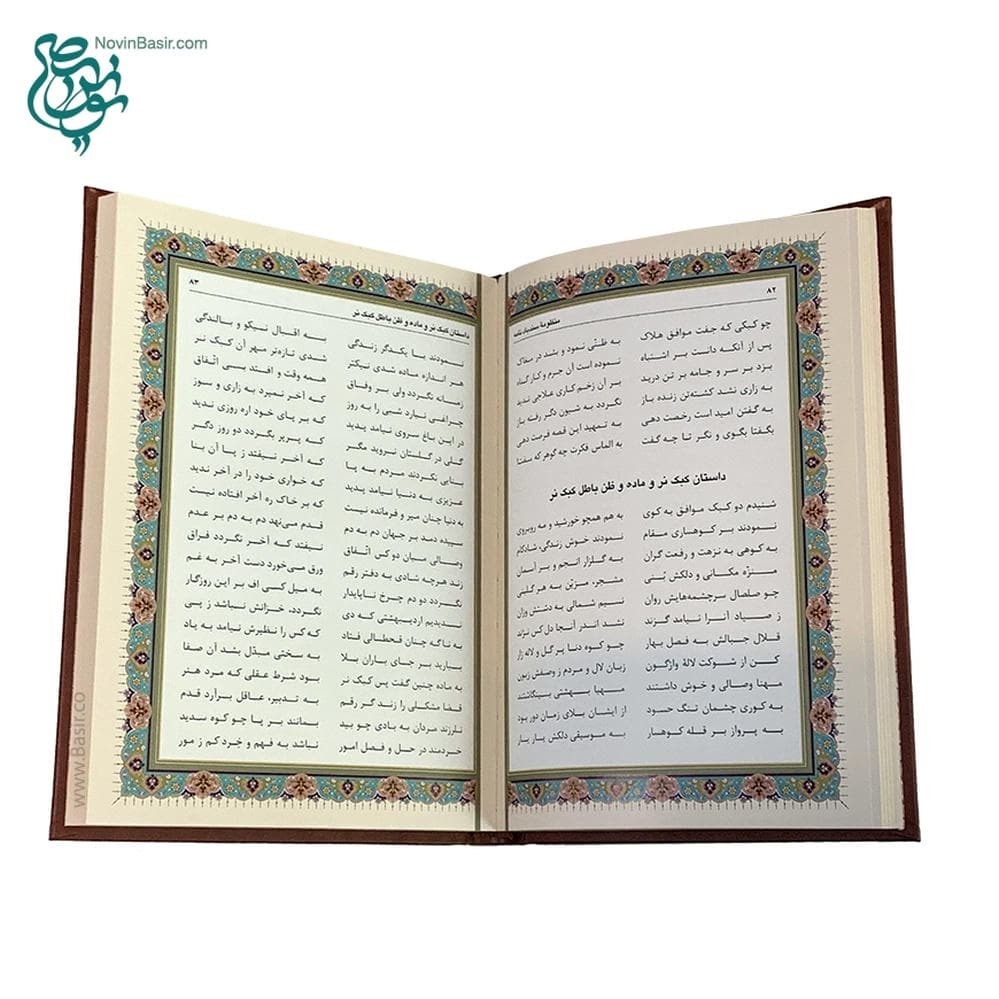 NovinBasir.com
نوین بصیر
۸۲
منظومهٔ سندباد نامه
چو کبکی که جفت موافق هلاک به ظنّی نمود و بشد در مغاک
پس از آنکه دانست بر اشتباه نموده است آن جرم و کار گناه
بزد بر سر و جامه بر تن درید بر آن زخم کاری علاجی ندید
به زاری نشد کشته‌تن زنده باز نگردد به شیون دگر رفته باز
به گفتن امید است رخصت دهی به تمهید این قصه فرصت دهی
بگفتا بگوی و نگر تا چه گفت به الماس فکرت چه گوهر که سفت
داستان کبک نر و ماده و ظن باطل کبک نر
شنیدم دو کبک موافق به کوی به هم همچو خورشید و مه روبروی
نمودند بر کوهساری مقام نمودند خوش زندگی، شادکام
به کوهی به نزهت و رفعت گران به گلزار انجم و بر آسمان
منزّه مکانی و دلکش بُنی مشجر، مزیّن به هر گلبنی
چو صلصال سرچشمه‌هایش روان نسیم شمالی به دشتش وزان
ز صیاد آنرا نیامد گزند نشد اندر آنجا دل کس نژند
قلال جبالش به فصل بهار چو کوه دنا پر گل و لاله زار
کن از شوکت لالهٔ واژگون زبان لال و مردم ز وصفش زبون
مهنا وصالی و خوش داشتند مهیا بهشتی بینگاشتند
به کوری چشمان تنگ حسود از ایشان بلای زمان دور بود
به پرواز بر قله کوهسار به موسیقی دلکش یار یار
۸۳
داستان کبک نر و ماده و ظن باطل کبک نر
نمودند با یکدگر زندگی به اقبال نیکو و بالندگی
هر اندازه ماده شدی نیکتر شدی تازه‌تر مهر آن کبک نر
زمانه نگردد ولی بر وفاق همه وقت و افتد بی اتّفاق
چراغی نیارد شبی را به روز که آخر نمیرد به زاری و سوز
در این باغ سروی نیامد پدید که بر پای خود اره روزی ندید
گلی در گلستان نروید مگر که پرپر بگردد دو روز دگر
بنایی نکردند مردم به پا که آخر نیفتد ز پا آن بنا
عزیزی به دنیا نیامد پدید که خواری خود را در آخر ندید
به دنیا چنان میر و فرمانده نیست که بر خاک ره آخر افتاده نیست
سپیده دمد بر جهان دم به دم قدم می‌نهد دم به دم بر عدم
وصالی میان دو کس اتّفاق نیفتد که آخر نگردد فراق
زند هرچه شادی به دفتر رقم ورق می‌خورد دست آخر به غم
نگردد دو دم چرخ ناپایدار به میل کسی اف بر این روزگار
ندیدیم اردیبهشتی که دی نگردد، خزانش نباشد ز پی
به ناگه چنان قحطسالی فتاد که کس را نظیرش نیامد به یاد
ببارید بر جای باران بلا به سختی مبدّل بشد آن صفا
به ماده چنین گفت پس کبک نر بود شرط عقلی که مرد هنر
قضا مشکلی را زند گر رقم به تدبیر، عاقل برآرد قدم
نلرزند مردان به بادی چو بید بمانند بر پا چو کوه سدید
خردمند در حل و فصل امور نباشد به فهم و خرد کم ز مور
www.Basir.co